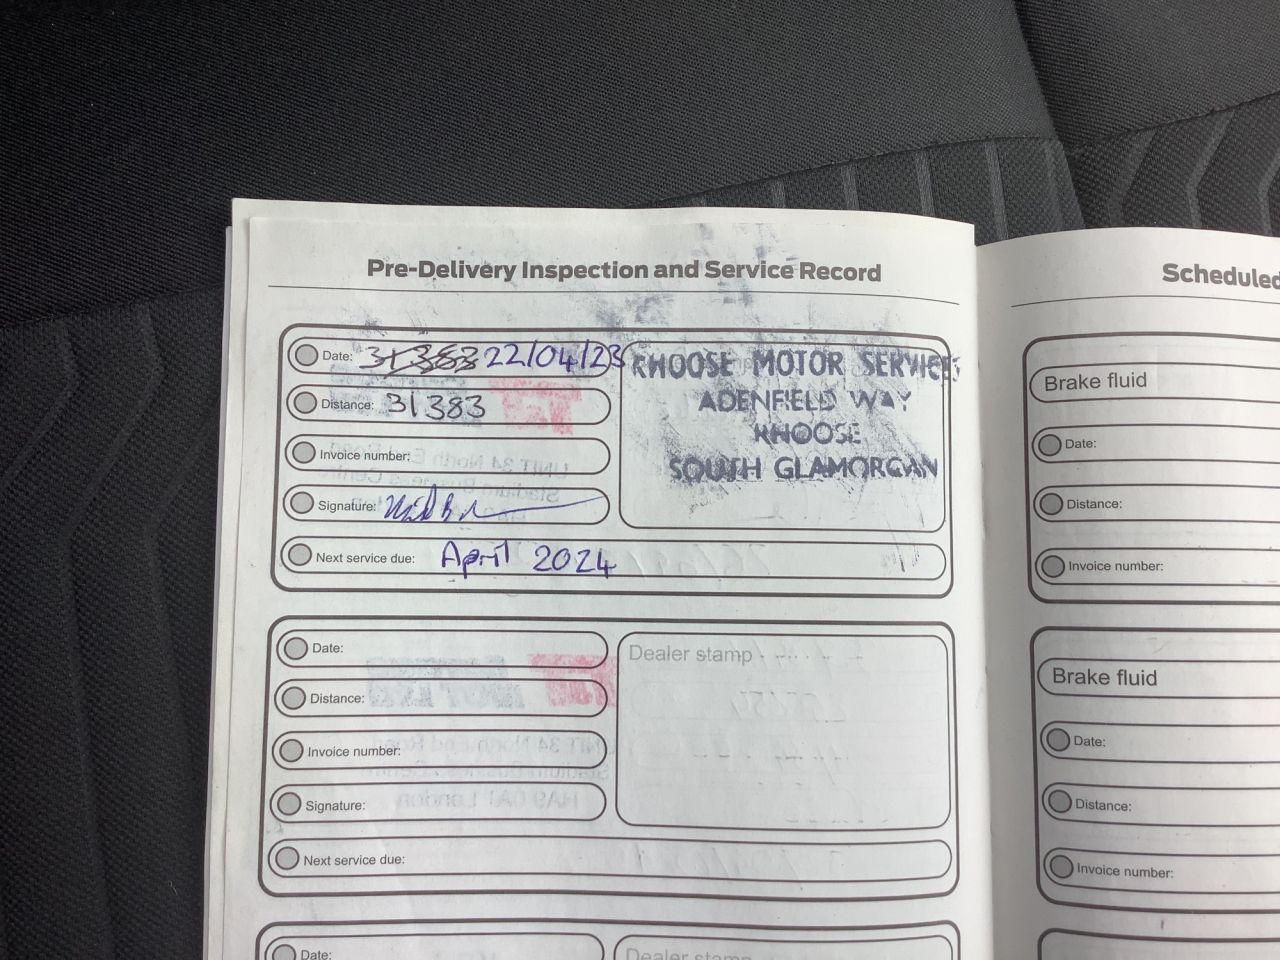 Pre-Delivery Inspection and Service Record
Date: 31383 22/04/23
Distance: 31383
Invoice number:
Signature:
Next service due: April 2024
RHOOSE MOTOR SERVICES
ADENFIELD WAY
RHOOSE
SOUTH GLAMORGAN
Date:
Distance:
Invoice number:
Signature:
Next service due:
Dealer stamp
Date:
Dealer stamp
Scheduled
Brake fluid
Date:
Distance:
Invoice number:
Brake fluid
Date:
Distance:
Invoice number: